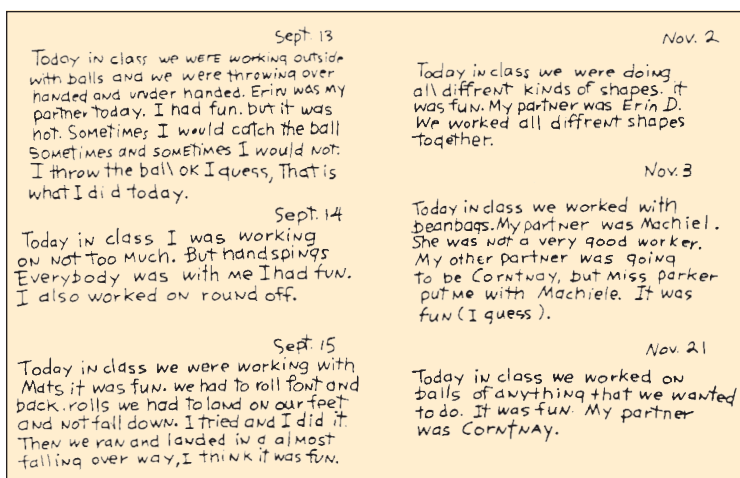 Sept. 13
Today in class we were working outside
with balls and we were throwing over
handed and under handed. Erin was my
partner today. I had fun. but it was
not. Sometimes I would catch the ball
sometimes and sometimes I would not.
I throw the ball ok I guess, That is
what I did today.
Sept. 14
Today in class I was working
on not too much. But handspings
Everybody was with me I had fun.
I also worked on round off.
Sept. 15
Today in class we were working with
Mats it was fun. we had to roll font and
back. rolls we had to land on our feet
and not fall down. I tried and I did it.
Then we ran and landed in a almost
falling over way, I think it was fun.
Nov. 2
Today in class we were doing
all diffrent kinds of shapes. it
was fun. My partner was Erin D.
We worked all diffrent shapes
together.
Nov. 3
Today in class we worked with
beanbags. My partner was Machiel.
She was not a very good worker.
My other partner was going
to be Corntnay, but Miss parker
put me with Machiele. It was
fun (I guess).
Nov. 21
Today in class we worked on
balls of anything that we wanted
to do. It was fun. My partner
was Corntnay.